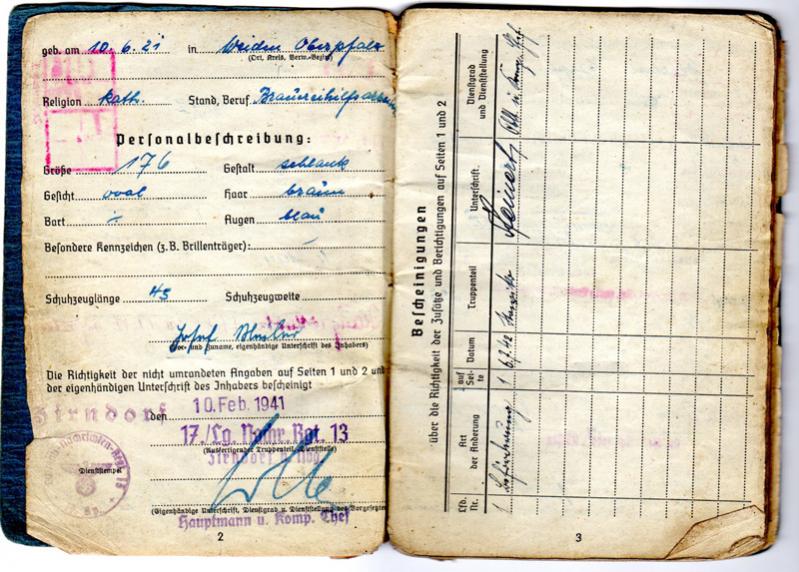 geb. am 10.6.21 in Weiden Oberpfalz
(Ort, Kreis, Verw.-Bezirk)
Religion kath. Stand, Beruf Brauereihilfsarbeiter
Personalbeschreibung:
Größe 176 Gestalt schlank
Gesicht oval Haar braun
Bart – Augen blau
Besondere Kennzeichen (z.B. Brillenträger): –
Schuhzeuglänge 43 Schuhzeugweite
Josef
(Vor- und Zuname, eigenhändige Unterschrift des Inhabers)
Die Richtigkeit der nicht umrandeten Angaben auf Seiten 1 und 2 und
der eigenhändigen Unterschrift des Inhabers bescheinigt
Zirndorf den 10. Feb. 1941
17./Lg. Nachr. Rgt. 13
(Ausfertigender Truppenteil, Dienststelle)
Zirndorf b. Nbg.
Dienststempel
(Eigenhändige Unterschrift, Dienstgrad u. Dienststellung des Vorgesetzten)
Hauptmann u. Komp. Chef
2
Bescheinigungen
über die Richtigkeit der Zusätze und Berichtigungen auf Seiten 1 und 2
Lfd. Nr. Art der Änderung auf Seite Datum Truppenteil Unterschrift Dienstgrad und Dienststellung
1 Beförderung 1
3